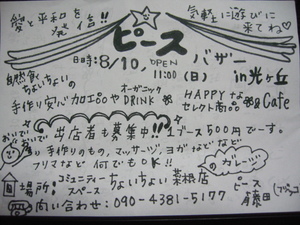 愛と平和を
発信!!
気軽に遊びに
来てね
ピース
バザー
日時:8/10, OPEN 11:00 (日) in光ヶ丘
自然食ちょいちょいの
手作り安心加工品やオーガニックDRINK
HAPPYな
セレクト商品 &Cafe
おいでおいで
出店者も募集中!! 1ブース500円でーす。
手作りのもの、マッサージ、ヨガなどなど
フリマなど 何でもOK!!
場所: コミュニティースペース ちょいちょい菜根店
のガレージ
問い合わせ: 090-4381-5177
ピース
藤田